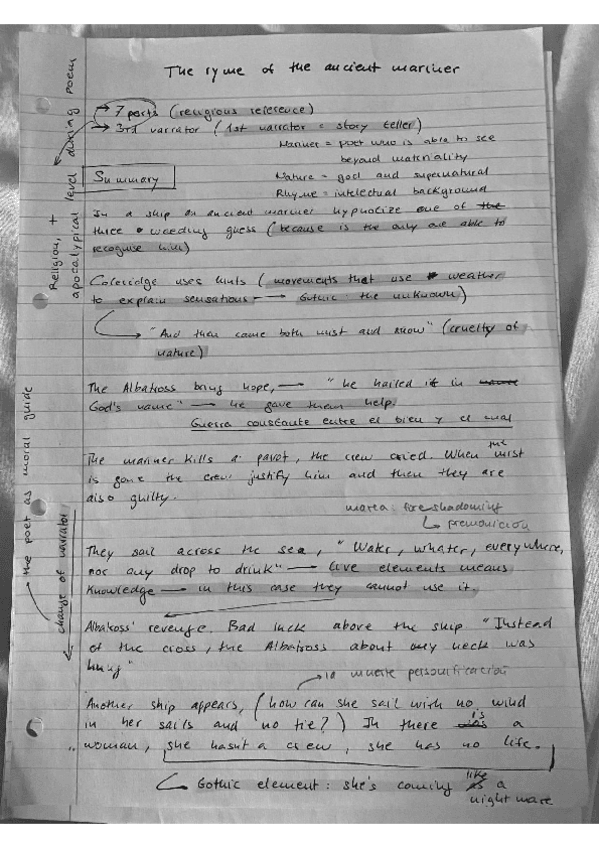 The ryme of the ancient mariner
→ 7 parts (religious reference)
→ 3rd narrator (1st narrator = story teller)
Mariner = poet who is able to see
beyond materiality
Nature = god and supernatural
Rhyme = intelectual background
Summary
In a ship an ancient mariner hypnotize one of the
three weeding guess (because is the only one able to
recognise him)
Coleridge uses hints (movements that use weather
to explain sensations → Gothic: the unknown)
"And then came both mist and snow" (cruelty of
nature)
The Albatross bring hope, → "he hailed it in
God's name" → he gave them help.
Guerra constante entre el bien y el mal
The mariner kills a parot, the crew cried. When the mist
is gone the crew justify him and then they are
also guilty.
marca: foreshadowing
↳ premonición
They sail across the sea, "Water, whater, everywhere,
nor any drop to drink" → live elements means
knowledge → in this case they cannot use it.
Albatross' revenge. Bad luck above the ship "Instead
of the cross, the Albatross about my neck was
hung"
la muerte personificación
Another ship appears, (how can she sail with no wind
in her sails and no tie?) In there was is a
woman, she hasn't a crew, she has no life.
↳ Gothic element: she's coming as like a
nightmare
Religion, +
apocalyptical level during poem
→ the poet as moral guide
change of narrator